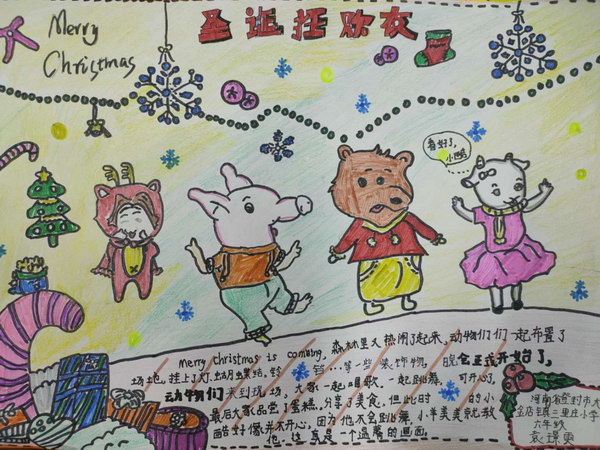 Merry
Christmas
圣诞狂欢夜
看好了，
小酷
merry christmas is coming. 森林里又热闹了起来，动物们们一起布置了
场地，挂上了灯、蝴蝶结、铃铛…等一些装饰物，晚会正式开始了，
动物们来到现场，大家一起唱歌，一起跳舞，可开心了，
最后大家品尝了蛋糕，分享了美食，但此时 的小
酷好像并不开心，因为他不会跳舞，小羊美美就教
他，这真是一个温馨的画面。
河南省登封市大
金店镇三里庄小学
六年级
袁璟